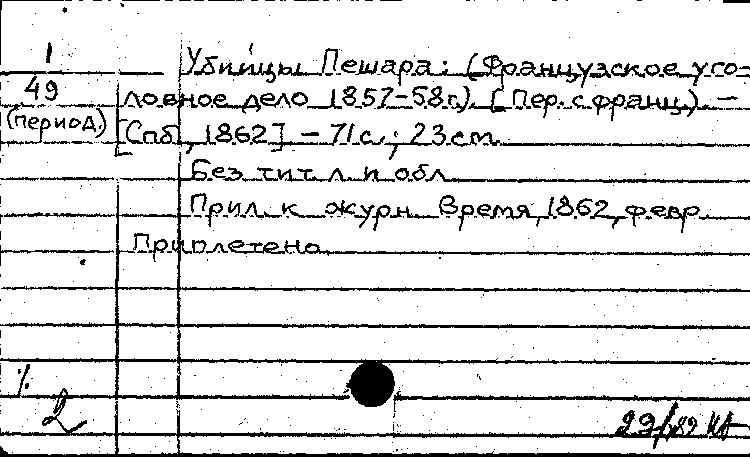 1
49
(период.)
Убийцы Пешара: (Французское уго-
ловное дело 1857-58г.) [Пер. с франц.). —
[Спб, 1862] - 71с.; 23см.
Без тит. л. и обл.
Прил. к журн. Время, 1862, февр.
Приплетено.
2